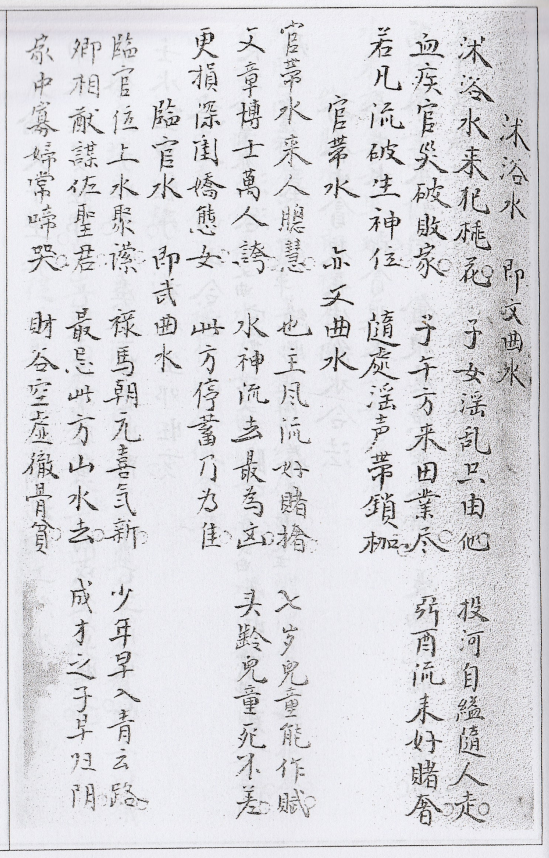 沐浴水　即文曲水
沐浴水来犯桃花　子女淫乱只由他　投河自縊隨人走
血疾官災破敗家　子午方来田業尽　卯酉流来好賭奢
若凡流破生神位　隨处淫声帶鎖枷
官帶水　亦文曲水
官帶水来人聰慧　也主风流好賭　七岁兒童能作賦
文章博士萬人誇　水神流去最為凶　兒童死不差
更損深閨嬌態女　此方停蓄乃為佳
臨官水　即武曲水
臨官位上水聚　祿馬朝元喜气新　少年早入青云路
卿相猷謀佐聖君　最忌此方山水去　成才之子早
家中寡婦常啼哭　財谷空虛徹骨貧